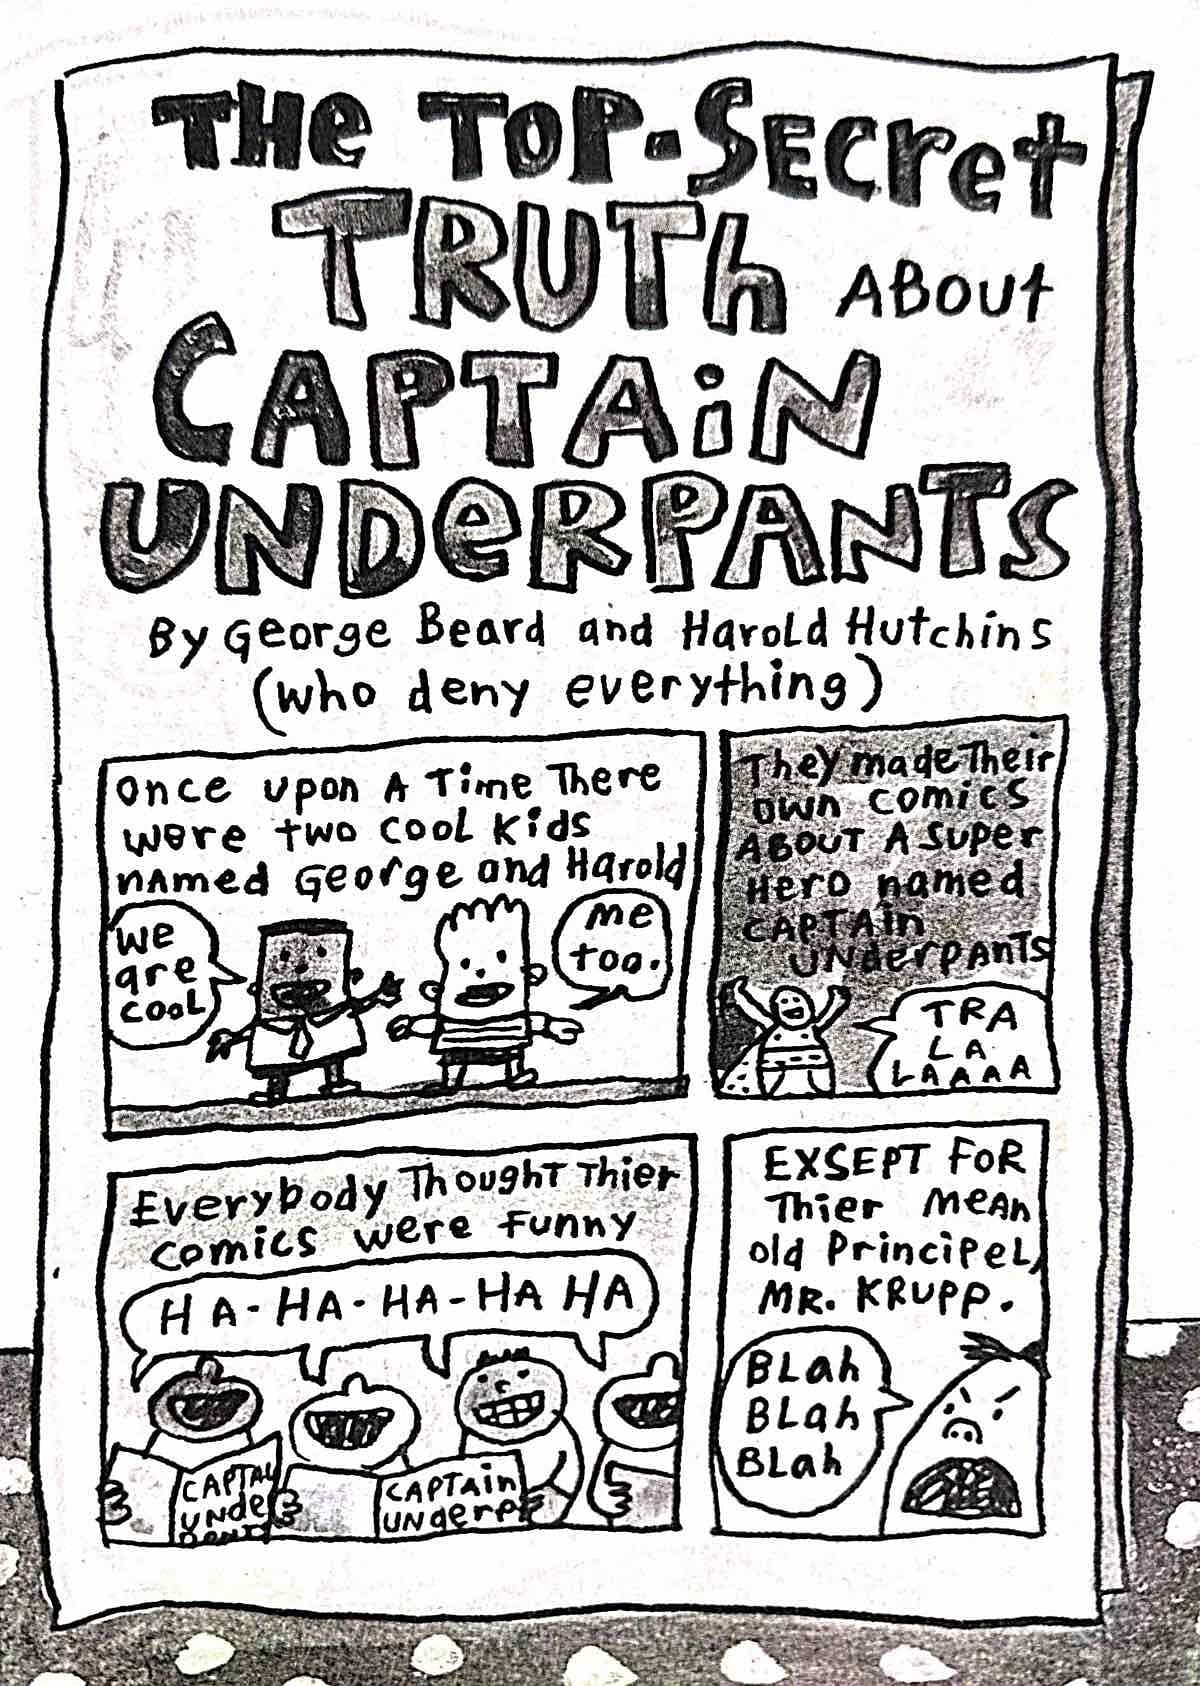 THE TOP-SECret
TRUTh ABOUt
CAPTAiN
UNDeRPANTS
By George Beard and Harold Hutchins
(who deny everything)
Once upon A Time There
were two cool kids
named George and Harold
we
are
cool
me
too.
They made Their
own comics
ABOUT A super
Hero named
CAPTAin
Underpants
TRA
LA
LAAAA
Everybody Thought Thier
comics were funny
HA-HA-HA-HA HA
CAPTAin
Underp
EXSEPT FOR
Thier mean
old Principel,
MR. KRUPP.
BLah
BLah
BLah